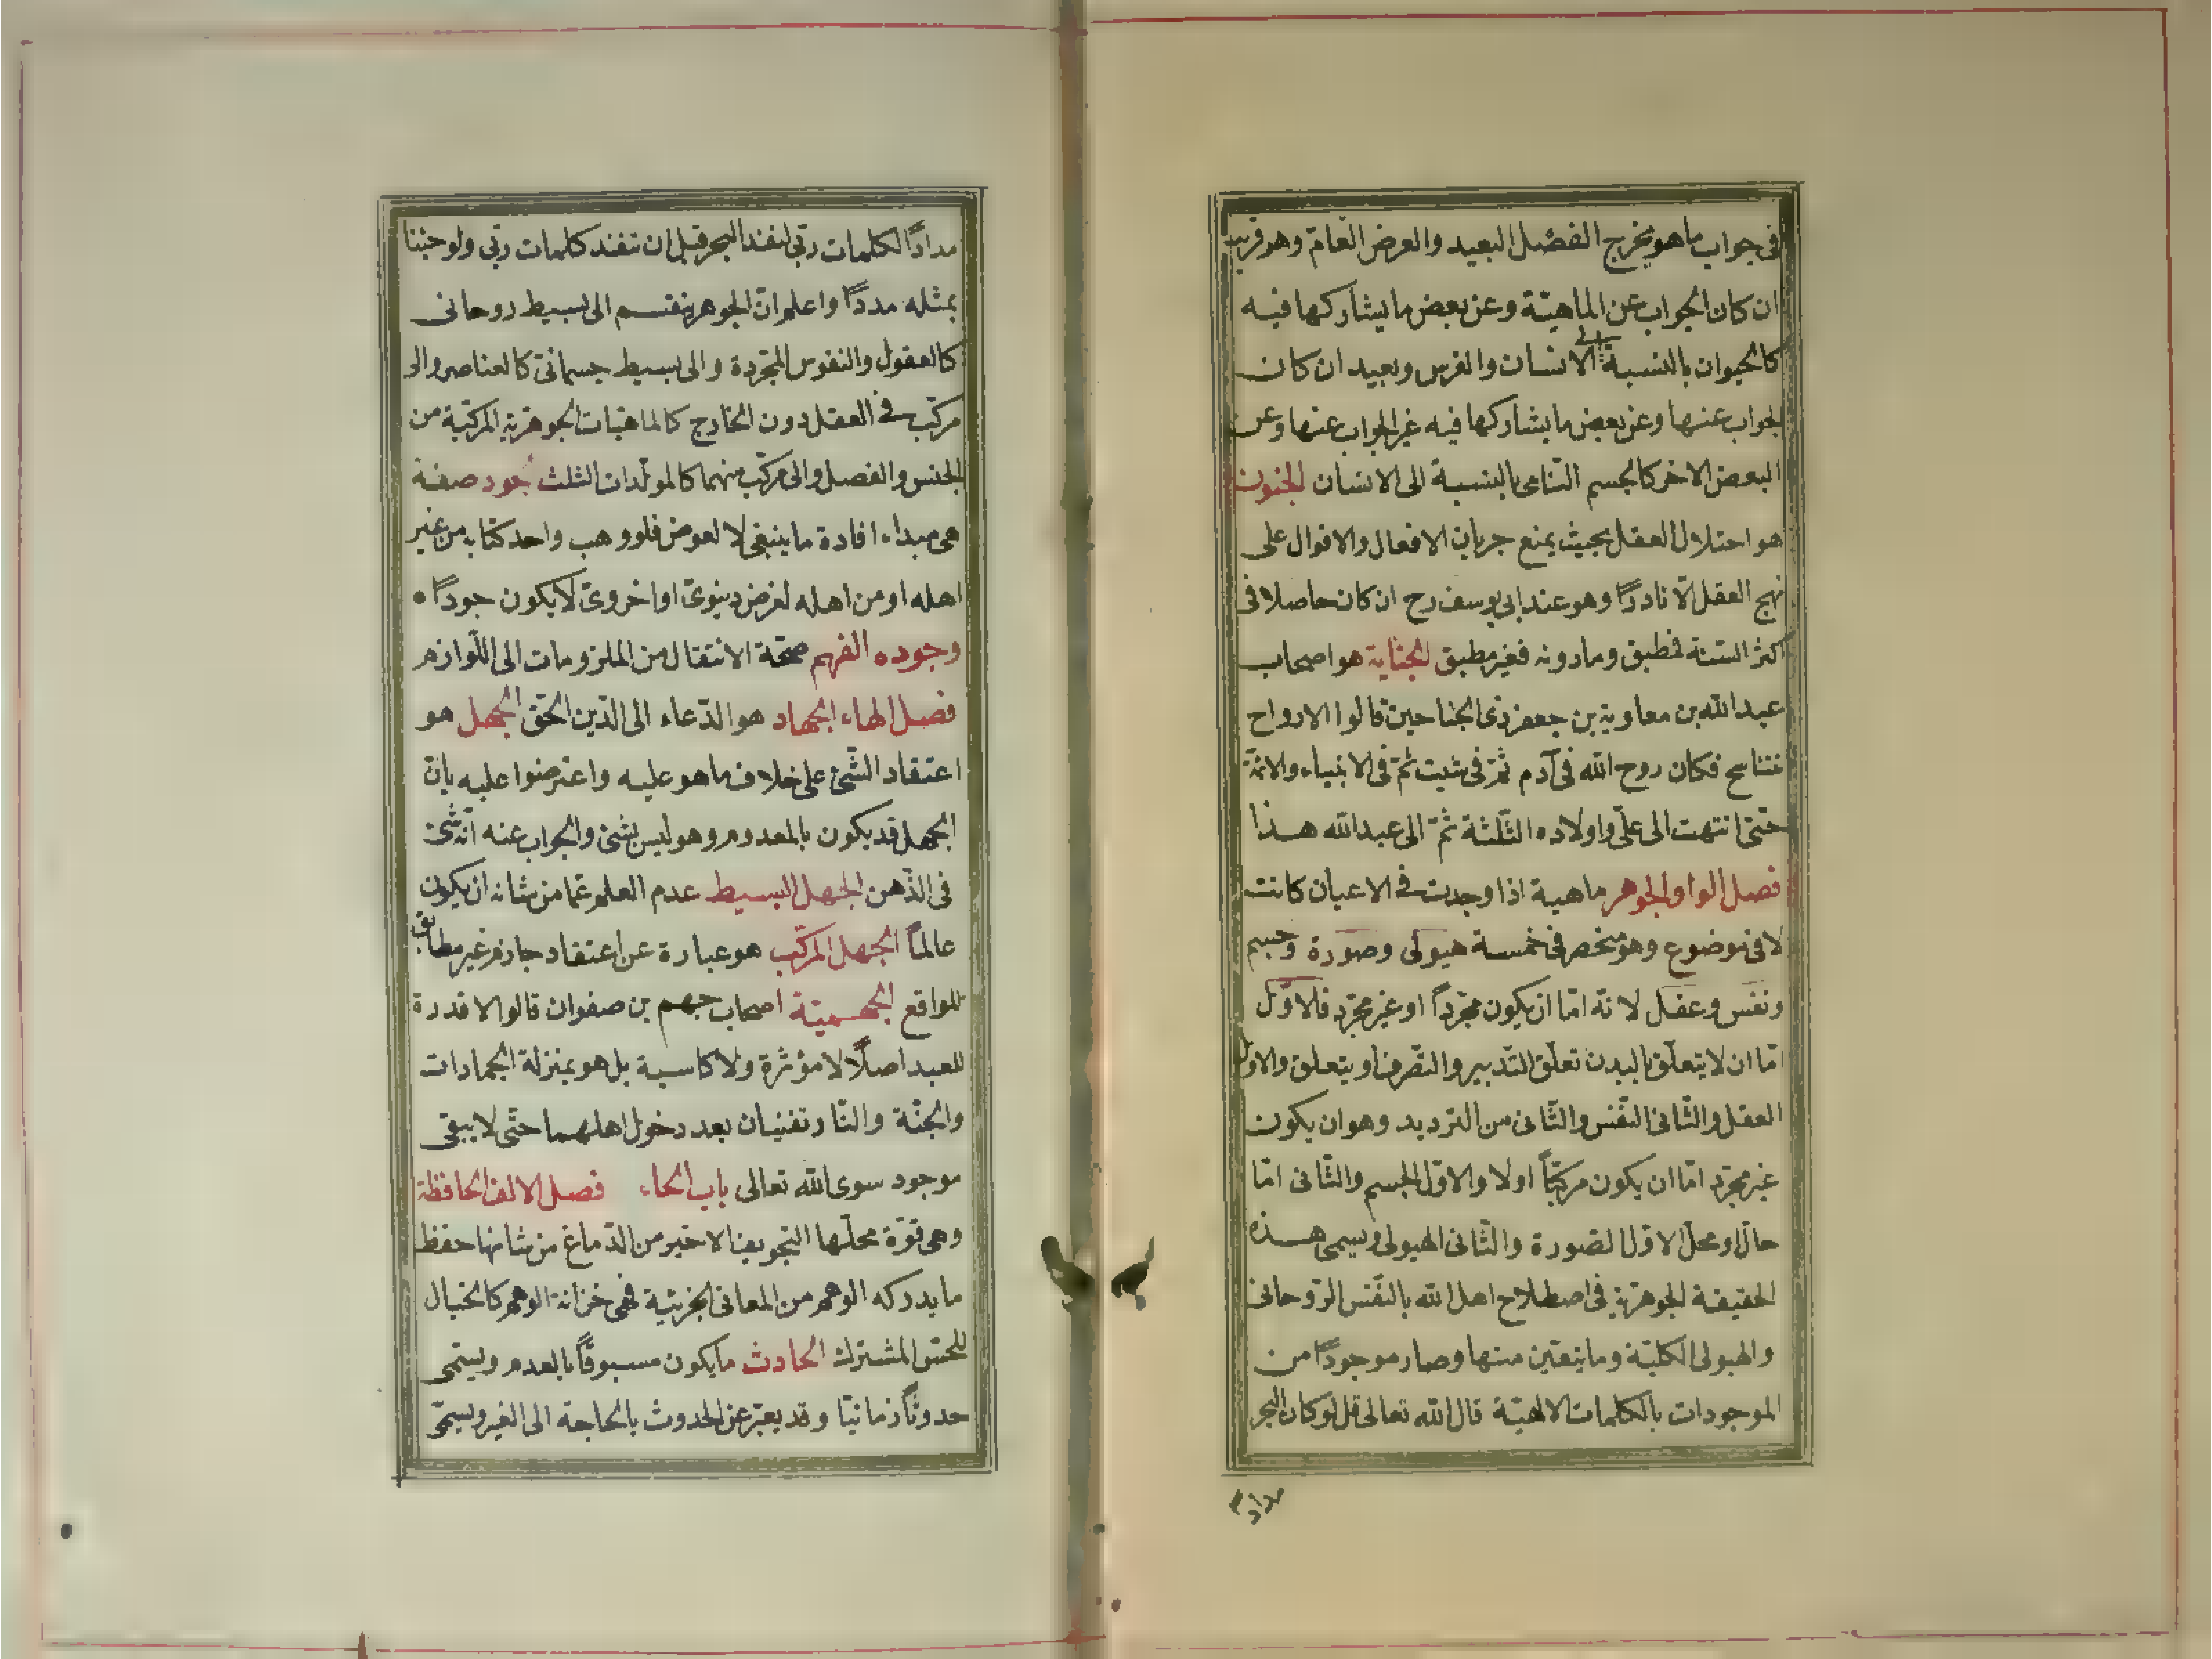 فى جواب ما هو يخرج الفصل البعيد والعرض العامّ وهو قريب
ان كان الجواب عن الماهيّة وعن بعض ما يشاركها فيه
كالحيوان بالنسبة الى الانسان والفرس وبعيد ان كان
الجواب عنها وعن بعض ما يشاركها فيه غير الجواب عنها وعن
البعض الاخر كالجسم النّامى بالنسبة الى الانسان الجنون
هو اختلال العقل بحيث يمنع جريان الافعال والاقوال على
نهج العقل الّا نادرًا وهو عند ابى يوسف رح ان كان حاصلا فى
اكثر السّنة فمطبق ومادونه فغير مطبق الجناية هو اصحاب
عبد الله بن معاوية بن جعفر ذى الجناحين قالوا الارواح
تتناسخ فكان روح الله فى آدم ثمّ فى شيث ثمّ فى الانبياء والائمّة
حتّى انتهت الى علىّ واولاده الثّلثة ثمّ الى عبد الله هذا
فصل الواو الجوهر ماهية اذا وجدت فى الاعيان كانت
لا فى موضوع وهو منحصر فى خمسة هيولى وصورة وجسم
ونفس وعقل لانّه امّا ان يكون مجرّدًا او غير مجرّد فالاوّل
امّا ان لا يتعلّق بالبدن تعلّق التّدبير والتّصرف او يتعلق والاول
العقل والثّانى النّفس والثّانى من الترديد وهو ان يكون
غير مجرّد امّا ان يكون مركّبًا اولا والاوّل الجسم والثّانى امّا
حالّ او محلّ الاوّل الصّورة والثّانى الهيولى ويسمى هذه
الحقيقة الجوهريّة فى اصطلاح اهل الله بالنّفس الرّوحانى
والهيولى الكلّيّة وما يتعيّن منها وصار موجودًا من
الموجودات بالكلمات الالهيّة قال الله تعالى قل لو كان البحر
مدادًا
مدادًا لكلمات ربّى لنفد البحر قبل ان تنفد كلمات ربّى ولو جئنا
بمثله مددًا واعلم انّ الجوهر ينقسم الى بسيط روحانى
كالعقول والنفوس المجرّدة والى بسيط جسمانىّ كالعناصر والى
مركّب فى العقل دون الخارج كالماهيّات الجوهريّة المركّبة من
الجنس والفصل والى مركّب منهما كالمولّدات الثلث جود صفة
هى مبداء افادة ما ينبغى لا لعوض فلو وهب واحد كتابه من غير
اهله او من اهله لغرض دنيوىّ او اخروىّ لا يكون جودًا
وجوده الفهم صحّة الانتقال من الملزومات الى اللّوازم
فصل الهاء الجهاد هو الدّعاء الى الدّين الحقّ الجهل هو
اعتقاد الشّئ على خلاف ما هو عليه واعترضوا عليه بانّ
الجهل قد يكون بالمعدوم وهو ليس بشئ والجواب عنه انّه شئ
فى الذّهن الجهل البسيط عدم العلم عمّا من شانه ان يكون
عالمًا الجهل المركّب هو عبارة عن اعتقاد جازم غير مطابق
للواقع الجهميّة اصحاب جهم بن صفوان قالوا لا قدرة
للعبد اصلًا لا مؤثّرة ولا كاسبة بل هو بمنزلة الجمادات
والجنّة والنّار تفنيان بعد دخول اهلهما حتّى لا يبقى
موجود سوى الله تعالى باب الحاء فصل الالف الحافظة
وهى قوّة محلّها التّجويف الاخير من الدّماغ من شانها حفظ
ما يدركه الوهم من المعانى الجزئيّة فهى خزانة الوهم كالخيال
للحسّ المشترك الحادث ما يكون مسبوقًا بالعدم ويسمّى
حدوثًا زمانيّا وقد يعبّر عن الحدوث بالحاجة الى الغير ويسمّى